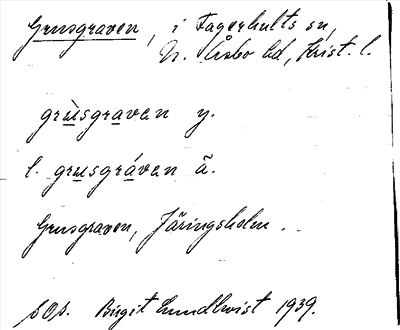 Grusgraven, i Fagerhults sn,
N. Åsbo hd, Krist. l.
grùsgraven y.
l. grusgráven ä.
Grusgraven, Järingsholm.
sOs. Birgit Lundkvist 1939.